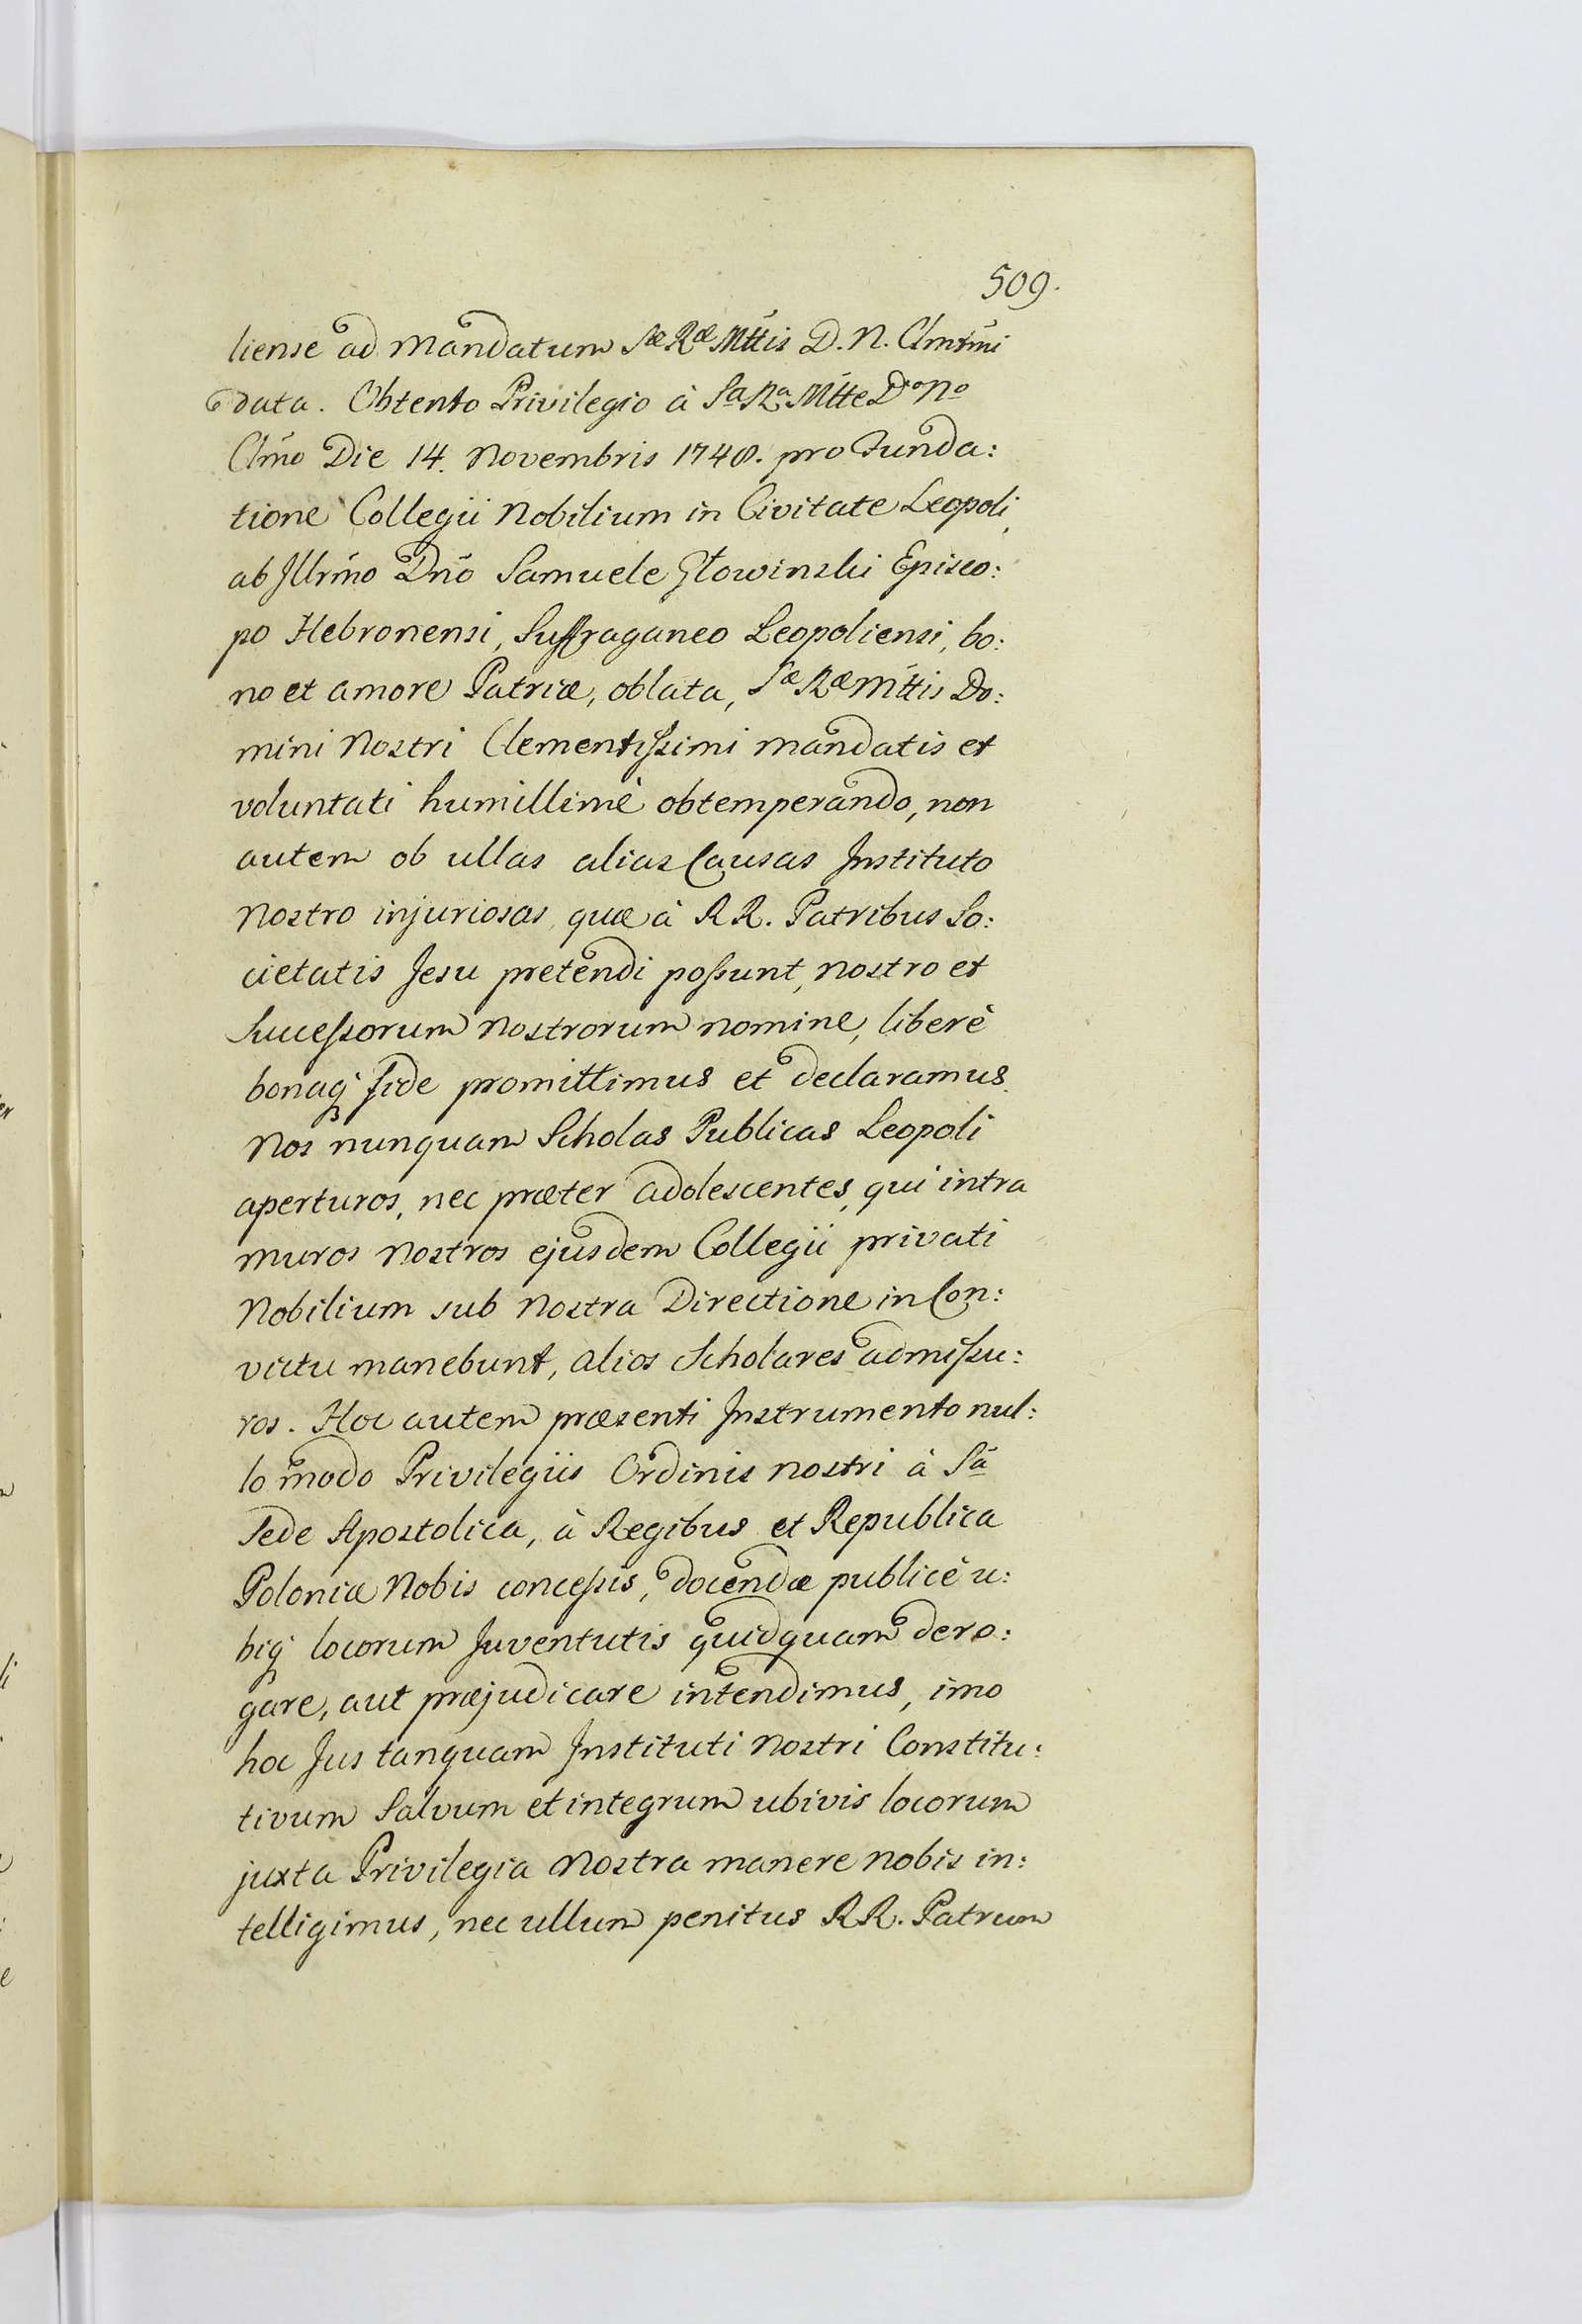 509.
liense ad Mandatum Sæ Ræ Mttis D. N. Clmtmi
data. Obtento Privilegio à Sa Ra Mtte Do No
Clmo Die 14. Novembris 1748. pro Funda:
tione Collegii Nobilium in Civitate Leopoli,
ab Illrmo Dno Samuele Głowinski Episco:
po Hebronensi, Suffraganeo Leopoliensi, bo:
no et amore Patriæ, oblata, Sæ Ræ Mttis Do:
mini Nostri Clementissimi mandatis et
voluntati humillimè obtemperando, non
autem ob ullas alias Causas Instituto
Nostro injuriosas, quæ à RR. Patribus So:
cietatis Jesu pretendi possunt, nostro et
Successorum Nostrorum nomine, liberè
bonaq fide promittimus et declaramus
Nos nunquam Scholas Publicas Leopoli
aperturos, nec præter adolescentes, qui intra
muros Nostros ejusdem Collegii privati
Nobilium sub Nostra Directione in Con:
victu manebunt, alios Scholares admissu:
ros. Hoc autem præsenti Instrumento nul:
lo modo Privilegiis Ordinis nostri à Sa
Sede Apostolica, à Regibus et Republica
Poloniæ Nobis concessis, docendæ publicè u:
biq locorum Juventutis quidquam dero:
gare, aut præjudicare intendimus, imo
hoc Jus tanquam Instituti Nostri Constitu:
tivum Salvum et integrum ubivis locorum
juxta Privilegia Nostra manere Nobis in:
telligimus, nec ullum penitus RR. Patrum